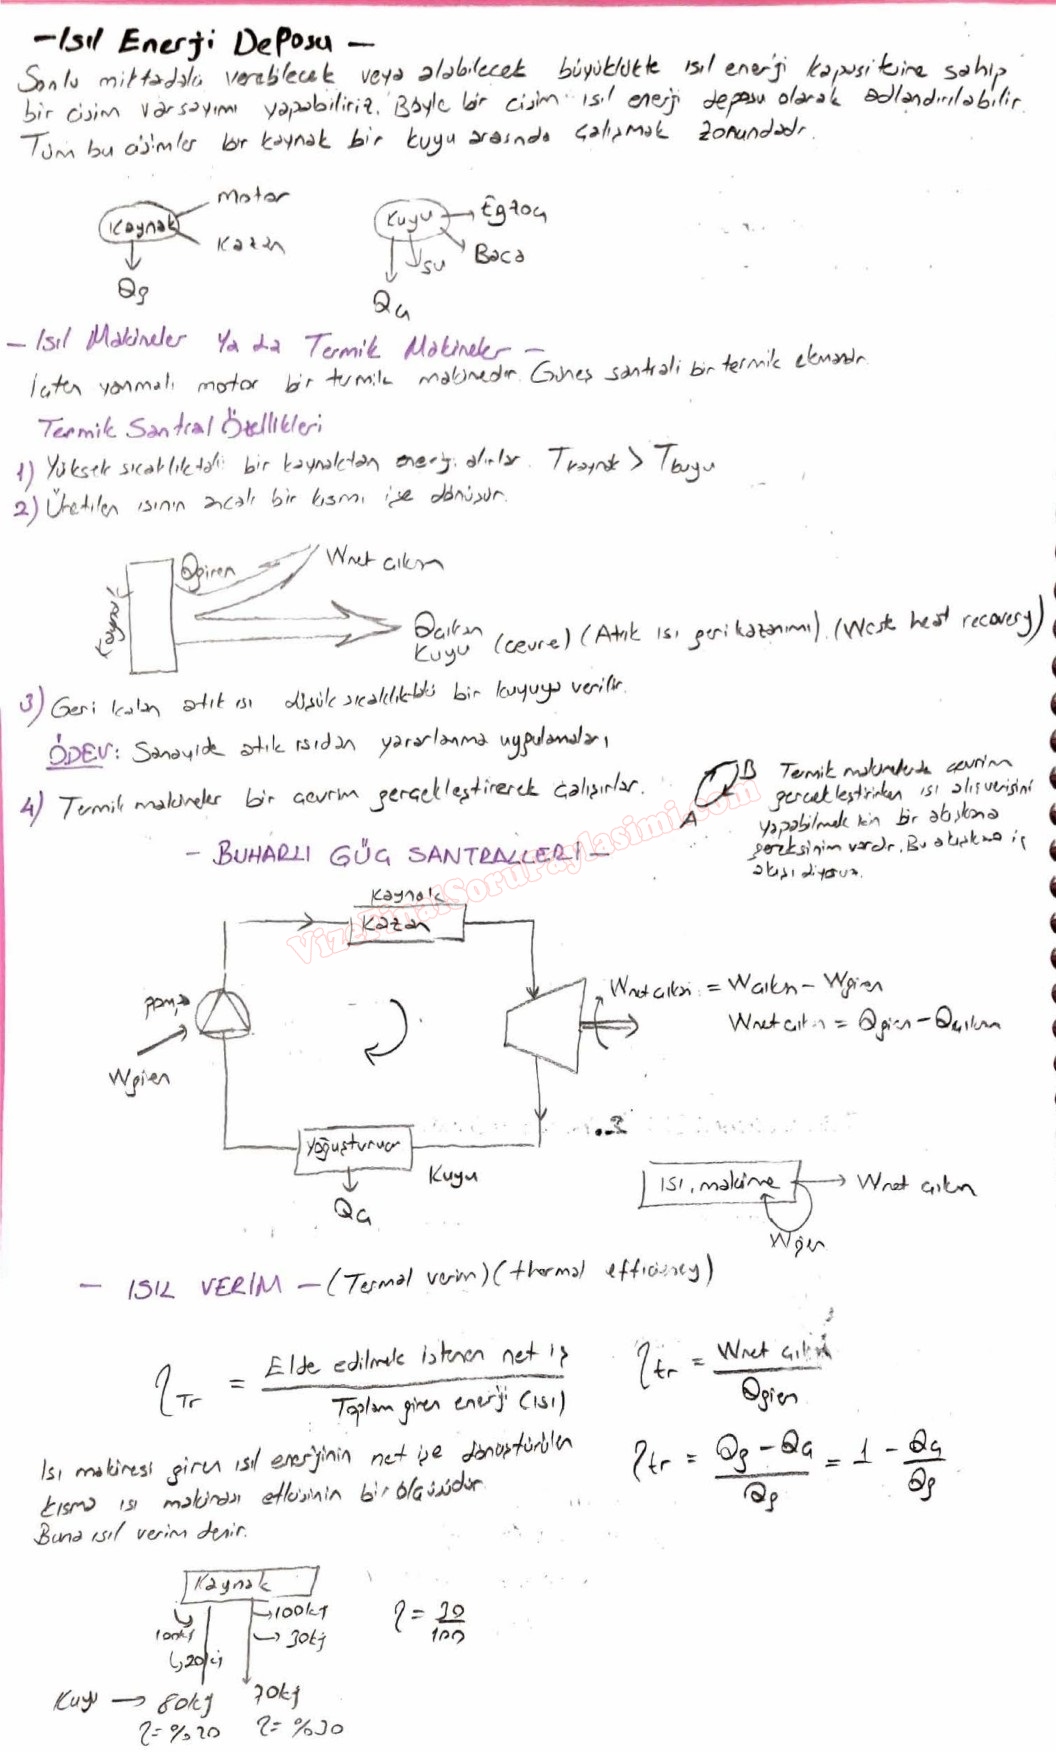 - Isıl Enerji Deposu -
Sonlu miktarda verebilecek veya alabilecek büyüklükte ısıl enerji kapasitesine sahip
bir cisim varsayımı yapabiliriz. Böyle bir cisim ısıl enerji deposu olarak adlandırılabilir.
Tüm bu cisimler bir kaynak bir kuyu arasında çalışmak zorundadır.
Kaynak
Motor
Kazan
Qg
Kuyu
Egzoz
Baca
su
Qç
- Isıl Makineler Ya da Termik Makineler -
İçten yanmalı motor bir termik makinedir. Güneş santrali bir termik elemandır.
Termik Santral Özellikleri
1) Yüksek sıcaklıktaki bir kaynaktan enerji alırlar. Tkaynak > Tkuyu
2) Üretilen ısının ancak bir kısmı işe dönüşür.
Kaynak
Qgiren
Wnet çıkan
Qçıkan
Kuyu (çevre) (Atık ısı geri kazanımı). (Waste heat recovery)
3) Geri kalan atık ısı düşük sıcaklıktaki bir kuyuya verilir.
ÖDEV: Sanayide atık ısıdan yararlanma uygulamaları
4) Termik makineler bir çevrim gerçekleştirerek çalışırlar.
A
B
Termik makinelerde çevrim
gerçekleştirirken ısı alışverişini
yapabilmek için bir akışkana
gereksinim vardır. Bu akışkana iş
akışı diyoruz.
- BUHARLI GÜÇ SANTRALLERİ -
VizeFinalSoruPaylasimi.com
Kaynak
Kazan
pompa
Wgiren
Wnet çıkan = Wçıkan - Wgiren
Wnet çıkan = Qgiren - Qçıkan
Yoğuşturucu
Kuyu
Qç
ısı makine
Wnet çıkan
Wgiren
- ISIL VERİM - (Termal verim) (thermal efficiency)
ηTr = Elde edilmek istenen net iş / Toplam giren enerji (ısı)
ηtr = Wnet çıkan / Qgiren
ηtr = Qg - Qç / Qg = 1 - Qç / Qg
Isı makinesi giren ısıl enerjinin net işe dönüştürülen
kısmı ısı makinası etkisinin bir ölçüsüdür.
Buna ısıl verim denir.
Kaynak
100kj
20kj
100kj
30kj
η = 30 / 100
Kuyu → 80kj 70kj
η = %20 η = %30